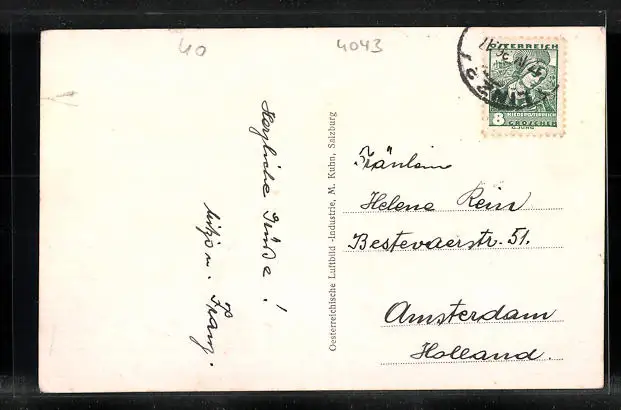 40
4043
LINZ 2
ÖSTERREICH
NIEDERÖSTERREICH
8 GROSCHEN
G.JUNG
Herzliche Grüße!
Mitzi u. Franz.
Oesterreichische Luftbild-Industrie, M. Kuhn, Salzburg
Fräulein
Helene Rein
Bestevaerstr. 51.
Amsterdam
Holland.